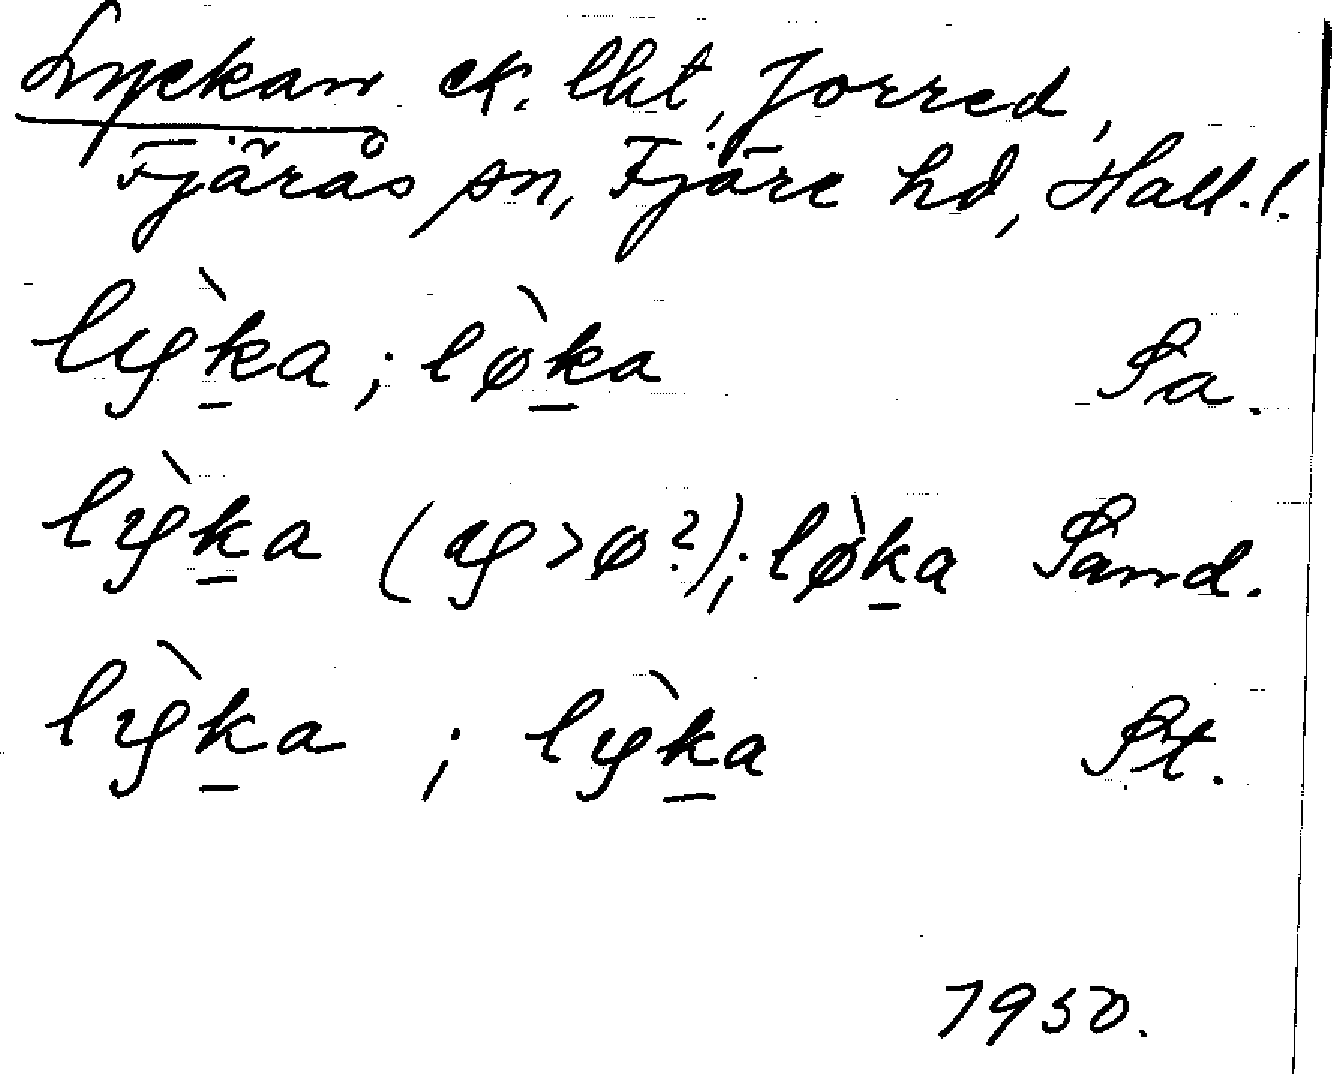 Lyckan ck. lht, Jorred,
Fjärås sn, Fjäre hd, Hall. l.
lỳk̲a ; lø̀k̲a Sa.
lỳk̲a (y > ø?); lø̀k̲a Sand.
lỳk̲a ; lỳk̲a St.
1950.